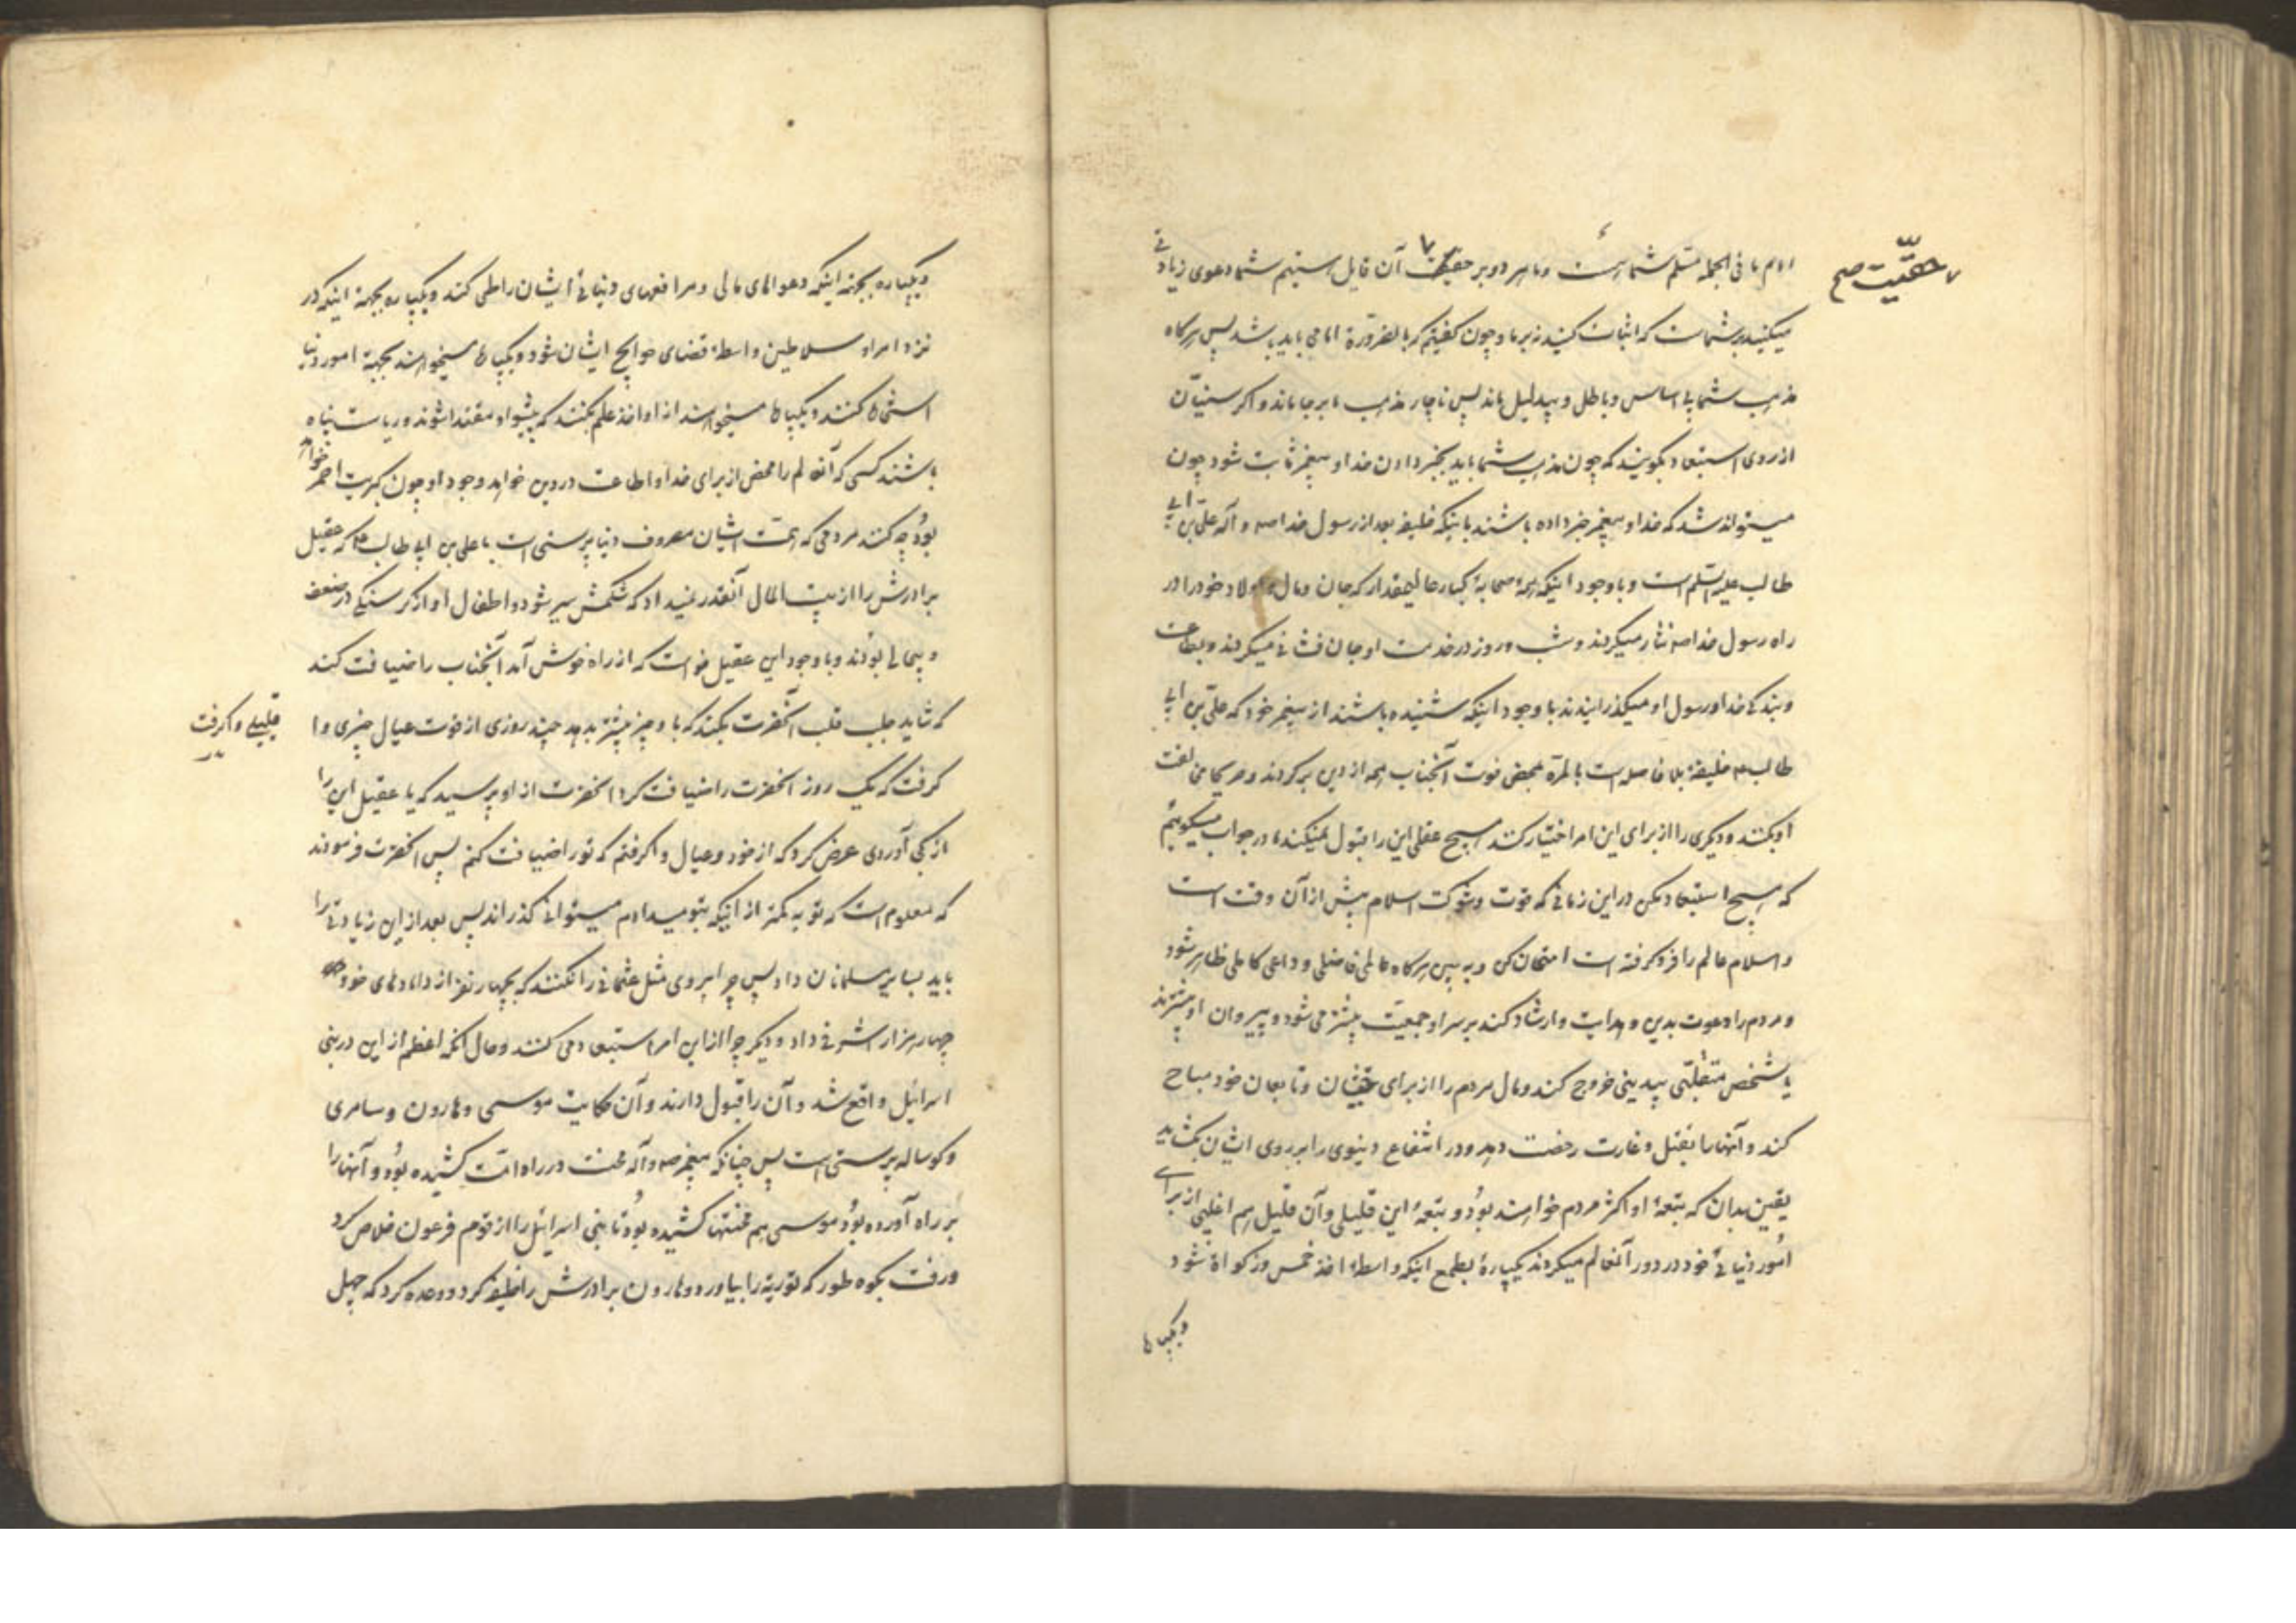 امام ما فی الجمله مسلم شما است و ما هر دو بر حقیت آن قایل هستیم شما دعوی زیادتی
حقّیت صح
میکنید بر شماست که اثبات کنید نه بر ما و چون گفتیم که بالضرورة امامی باید باشد پس هرگاه
مذهب شما بی اساس و باطل و بیدلیل ماند پس ناچار مذهب ما بر جا ماند و اگر سنیان
از روی استبعاد بگویند که چون مذهب شما باید بخبر دادن خدا و پیغمبر ثابت شود چون
میتواند شد که خدا و پیغمبر خبر داده باشند باینکه خلیفه بعد از رسول خدا صه و آله علی بن ابی
طالب علیه السلم است و با وجود اینکه همهٔ صحابهٔ کبار عالیمقدار که جان و مال و اولاد خود را در
راه رسول خدا صه نثار میکردند و شب و روز در خدمت او جان فشانی میکردند و بطاعت
و بندگی خدا و رسول او میگذرانیدند با وجود اینکه شنیده باشند از پیغمبر خود که علی بن ابی
طالب ع خلیفهٔ بلا فاصله است بالمره بمحض فوت آنجناب همه از دین برگردند و همگی مخالفت
او بکنند و دیگری را از برای این امر اختیار کنند هیچ عقلی این را قبول نمیکند، در جواب میگوئیم
که هیچ استبعاد مکن در این زمانی که قوت و شوکت اسلام بیش از آن وقت است
و اسلام عالم را فرو گرفته است امتحان کن و ببین هرگاه عالمی فاضلی و داعی کاملی ظاهر شود
و مردم را دعوت بدین و هدایت و ارشاد کند بر سر او جمعیت بیشتر می شود و پیروان او بیشترند
یا شخص متغلّبی بیدینی خروج کند و مال مردم را از برای خویشان و تابعان خود مباح
کند و آنها را بقتل و غارت رخصت دهد و در انتفاع دنیوی را بر روی ایشان بگشاید
یقین بدان که تبعهٔ او اکثر مردم خواهند بود و تبعهٔ این قلیلی و آن قلیل هم اغلبی از برای
امور دنیائی خود در دور آنعالم میگردند یکپارهٔ بطمع اینکه واسطهٔ اخذ خمس و زکواة شود
و یکپاره
و یکپاره بجهة اینکه دعواهای مالی و مرافعهای دنیائی ایشان را طی کند و یکپاره بجهة اینکه در
نزد امرا و سلاطین واسطهٔ قضای حوایج ایشان شود و یکپاره میخواهند بجهة امور دنیا
استخاره کنند و یکپاره میخواهند از او اخذ علم بکنند که پیشوا و مقتدا شوند و ریاست پناه
باشند کسی که آنعالم را محض از برای خدا و اطاعت در دین خواهد وجود او چون کبریت احمر خواهد
بود چه کنند مردمی که همّت ایشان مصروف دنیا پرستی است با علی بن ابی طالب ع که عقیل
برادرش را از بیت المال آنقدر نمیداد که شکمش سیر شود و اطفال او از گرسنگی در ضعف
و بیحالی بودند و با وجود این عقیل خواست که از راه خوش آمد آنجناب را ضیافت کند
که شاید جلب قلب آنحضرت بکند که باو چیز بیشتر بدهد چند روزی از قوت عیال چیزی وا
قلیلی واگرفت
گرفت که یک روز آنحضرت را ضیافت کرد آنحضرت از او پرسید که یا عقیل این را
از کجا آوردی عرض کرد که از خود و عیال واگرفتم که تو را ضیافت کنم پس آنحضرت فرمودند
که معلوم است که تو به کمتر از اینکه بتو میدادم میتوانی گذراند پس بعد از این زیادتی را
باید بسایر مسلمانان داد پس چرا پیروی مثل عثمانی را نکنند که بچهار نفر از دامادهای خود
چهار هزار اشرفی داد و دیگر چرا از این امر استبعاد می کنند و حال آنکه اعظم از این در بنی
اسرائیل واقع شد و آن را قبول دارند و آن حکایت موسی و هارون و سامری
و گوساله پرستی است پس چنانکه پیغمبر صه و آله محنت در راه امّت کشیده بود و آنها را
بر راه آورده بود موسی هم محنتها کشیده بود تا بنی اسرائیل را از قوم فرعون خلاص کرد
و رفت بکوه طور که توریة را بیاورد و هارون برادرش را خلیفه کرد و وعده کرد که چهل